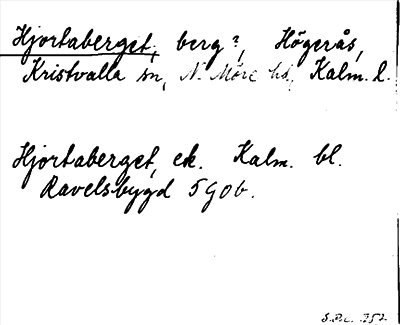 Hjortaberget, berg?, Högerås,
Kristvalla sn, N. Möre hd, Kalm. l.
Hjortaberget, ek. Kalm. bl.
Ravelsbygd 5G0b.